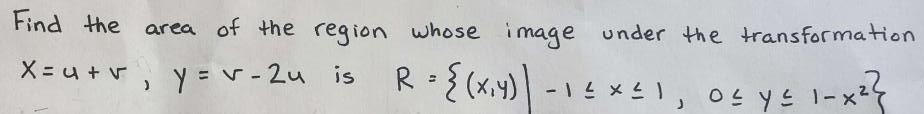 Find the area of the region whose image under the transformation
x = u + v, y = v - 2u is R = {(x,y) | -1 ≤ x ≤ 1, 0 ≤ y ≤ 1-x²}